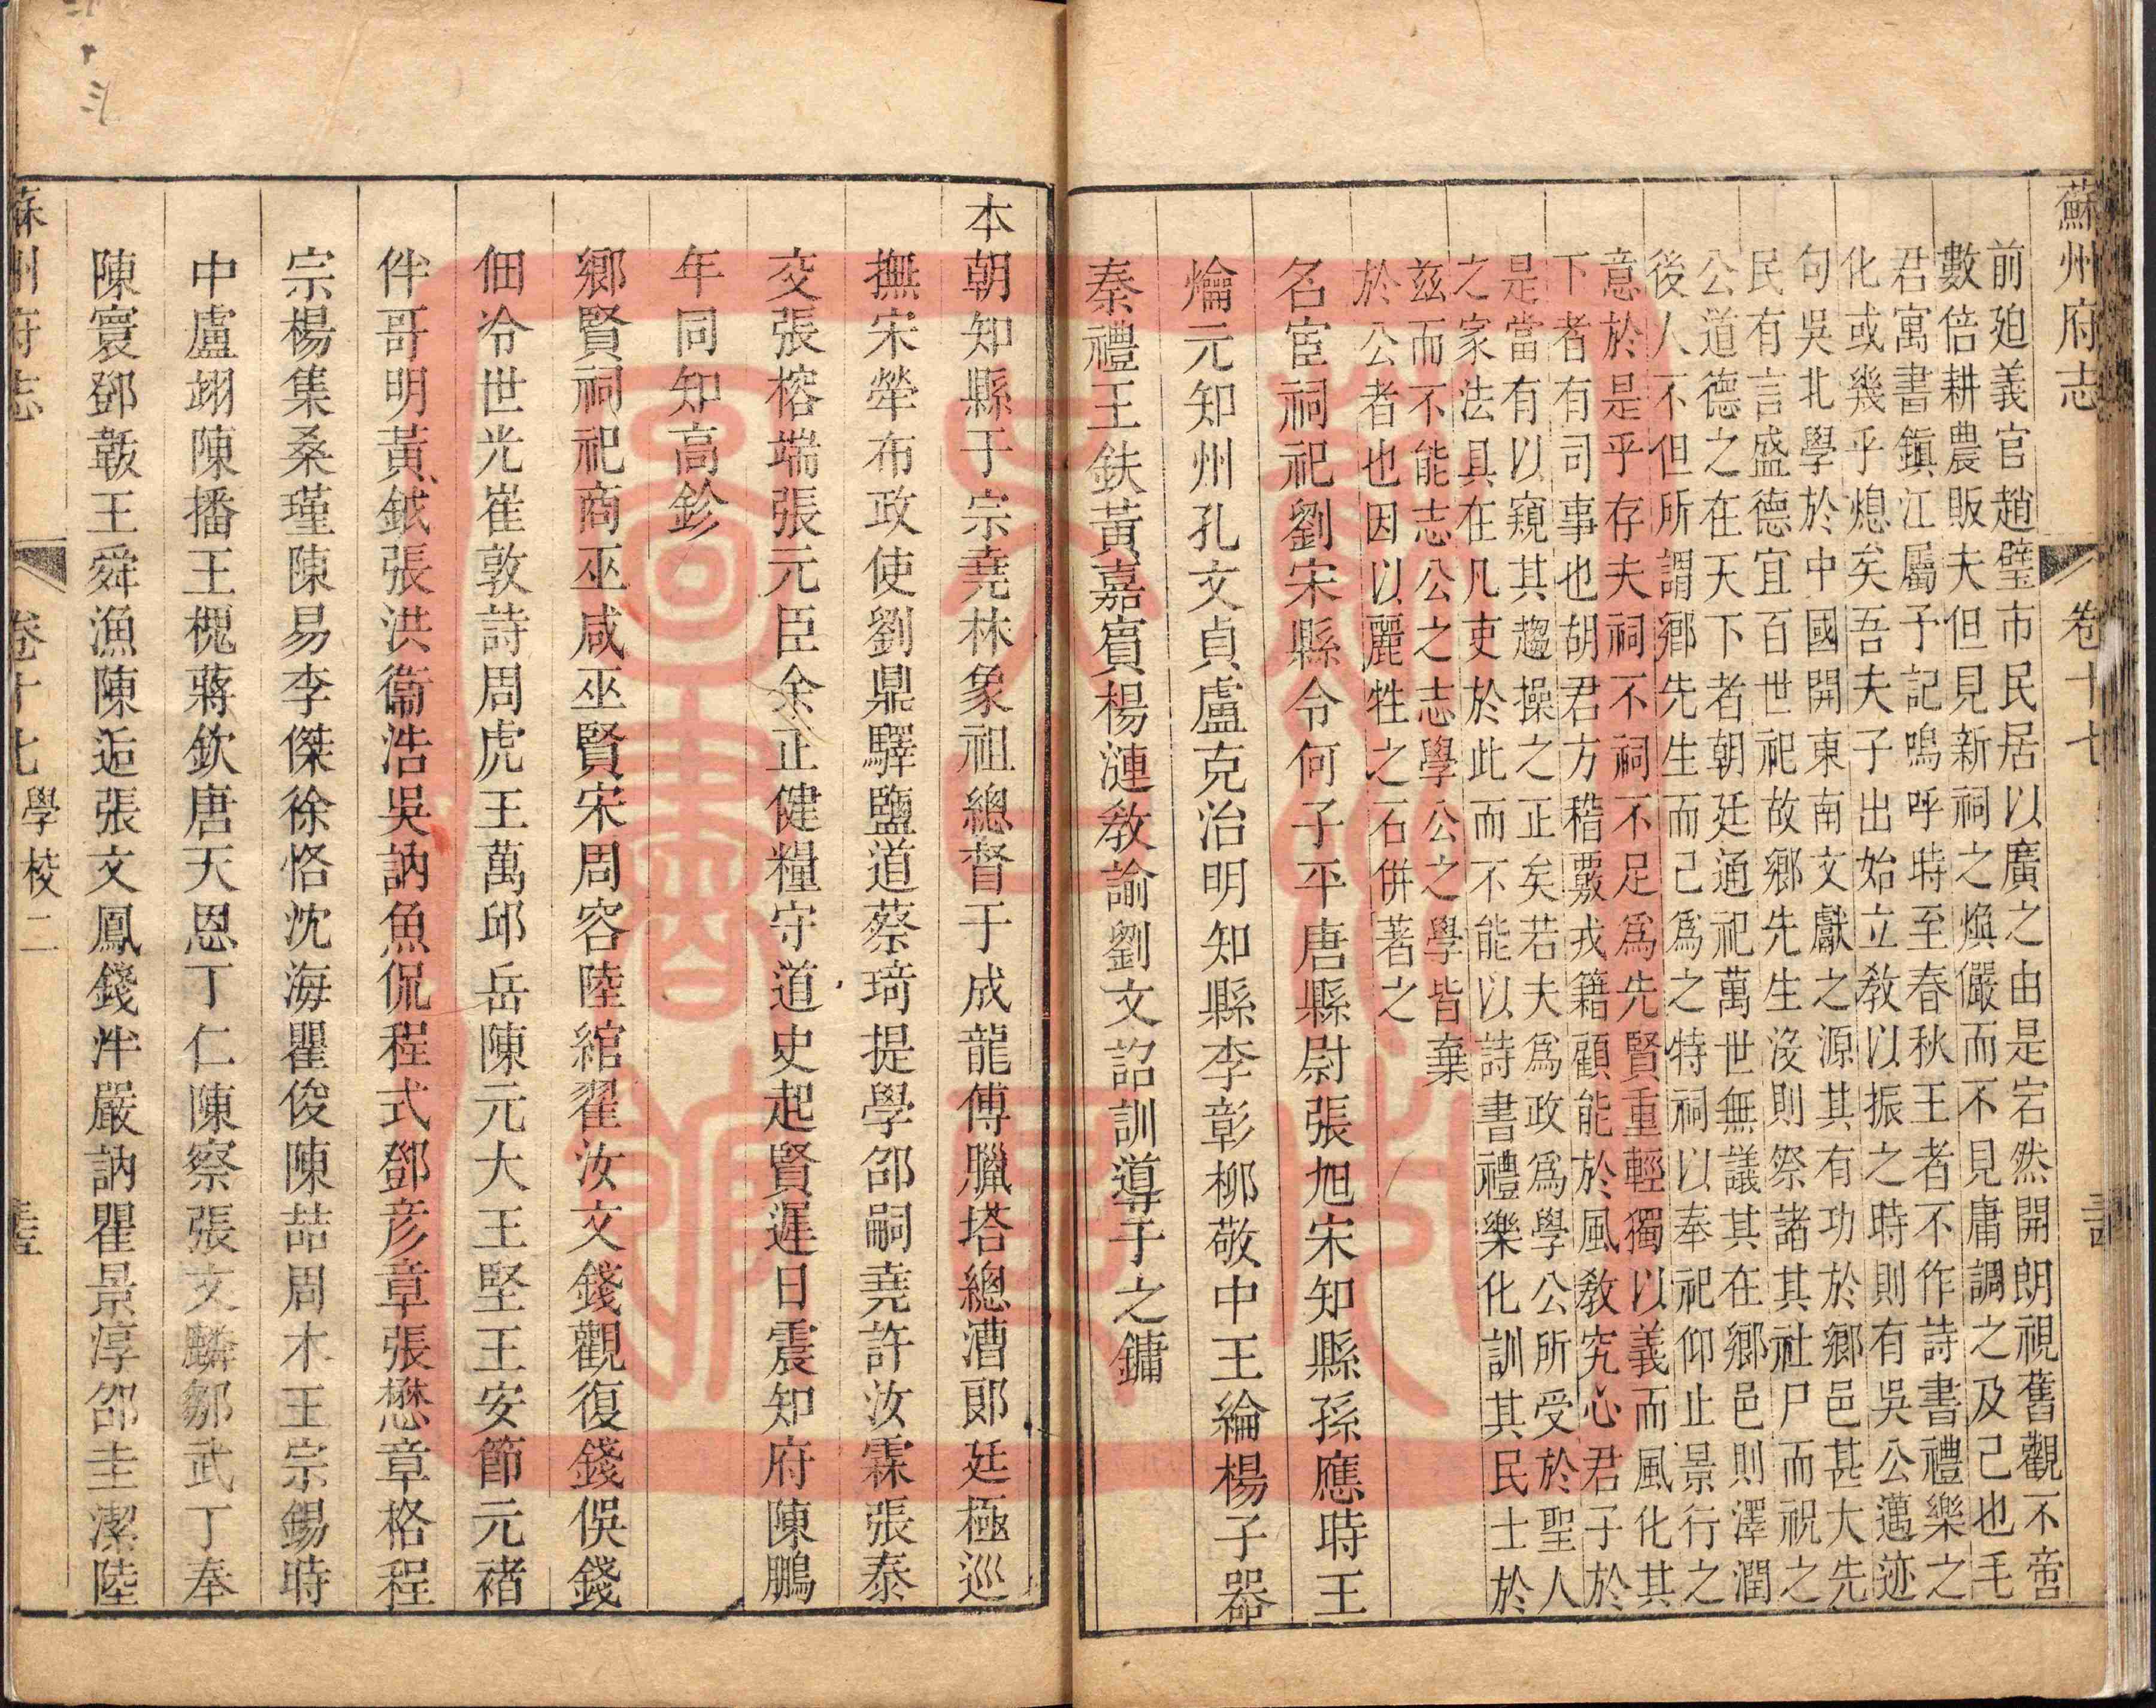 蘇州府志 卷十七
前廹義官趙璧市民居以廣之由是宕然開朗視舊觀不啻
數倍耕農販夫但見新祠之煥儼而不見庸調之及己也毛
君寓書鎮江屬予記嗚呼時至春秋王者不作詩書禮樂之
化或幾乎熄矣吾夫子出始立教以振之時則有吳公邁迹
句吳北學於中國開東南文獻之源其有功於鄉邑甚大先
民有言盛德宜百世祀故鄉先生没則祭諸其社尸而祝之
公道德之在天下者朝廷通祀萬世無議其在鄉邑則澤潤
後人不但所謂鄉先生而己爲之特祠以奉祀仰止景行之
意於是乎存夫祠不祠不足爲先賢重輕獨以義而風化其
下者有司事也胡君方稽覈戎籍顧能於風教究心君子於
是當有以窺其趨操之正矣若夫爲政爲學公所受於聖人
之家法具在凡吏於此而不能以詩書禮樂化訓其民士於
兹而不能志公之志學公之學皆棄
於公者也因以麗牲之石併著之
名宦祠祀劉宋縣令何子平唐縣尉張旭宋知縣孫應時王
爚元知州孔文貞盧克治明知縣李彰柳敬中王綸楊子器
秦禮王鈇黃嘉賓楊漣教諭劉文詔訓導于之鏞
本朝知縣于宗堯林象祖總督于成龍傅臘塔總漕郞廷極巡
撫宋犖布政使劉鼎驛鹽道蔡琦提學邵嗣堯許汝霖張泰
交張榕端張元臣余正健糧守道史起賢遲日震知府陳鵬
年同知高鉁
鄉賢祠祀商巫咸巫賢宋周容陸綰翟汝文錢觀復錢俁錢
佃冷世光崔敦詩周虎王萬邱岳陳元大王堅王安節元褚
伴哥明黃鉞張洪衞浩吳訥魚侃程式鄧彦章張懋章格程
宗楊集桑瑾陳易李傑徐恪沈海瞿俊陳喆周木王宗錫時
中盧翊陳播王槐蔣欽唐天恩丁仁陳察張文麟鄒武丁奉
陳寰鄧韍王舜漁陳逅張文鳳錢泮嚴訥瞿景淳邵圭潔陸
蘇州府志 卷十七 學校二